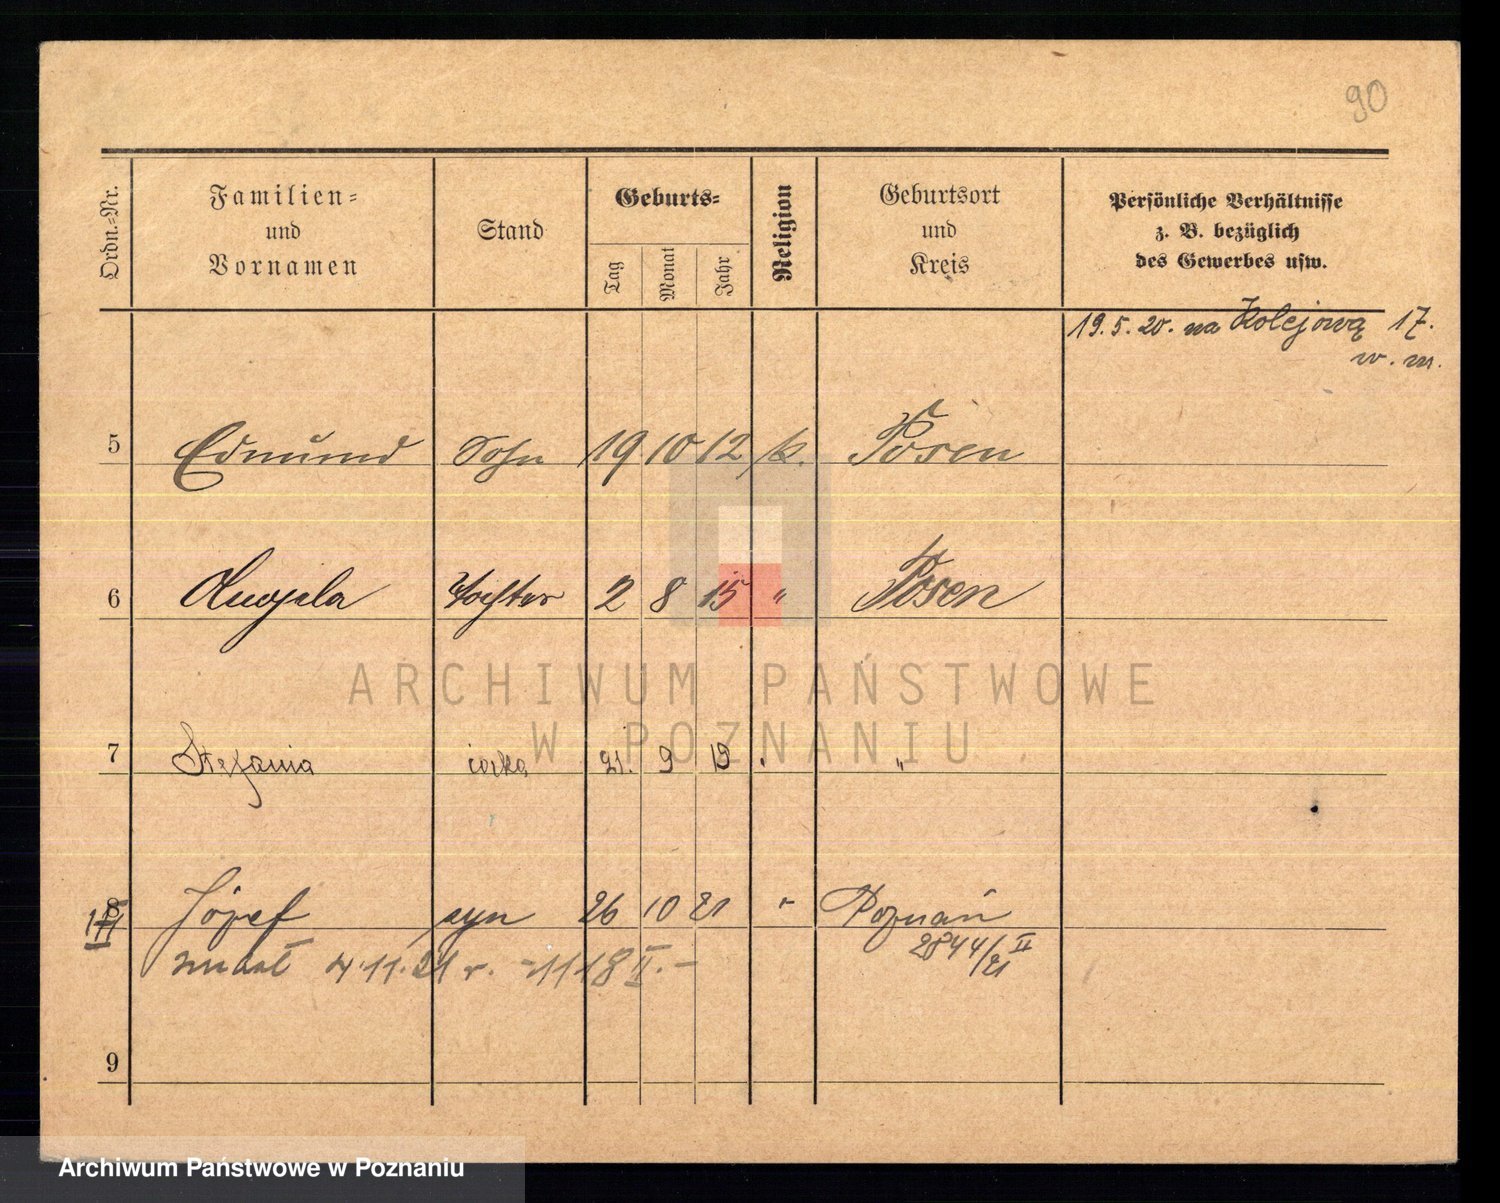 90
Ordn.-Nr.
Familien-
und
Vornamen
Stand
Geburts-
Tag
Monat
Jahr
Religion
Geburtsort
und
Kreis
Persönliche Verhältnisse
z. B. bezüglich
des Gewerbes usw.
19.5.20. na Kolejową 17.
w. m.
5 Edmund Sohn 19 10 12 k. Posen
6 Angela Tochter 2 8 15 " Posen
ARCHIWUM PAŃSTWOWE
W POZNANIU
7 Stefania córka 21. 9 19 . "
8 Józef syn 26 10 21 " Poznań
2844/21 II
zmarł 4.11.21 r. - 1118 II. -
9
Archiwum Państwowe w Poznaniu